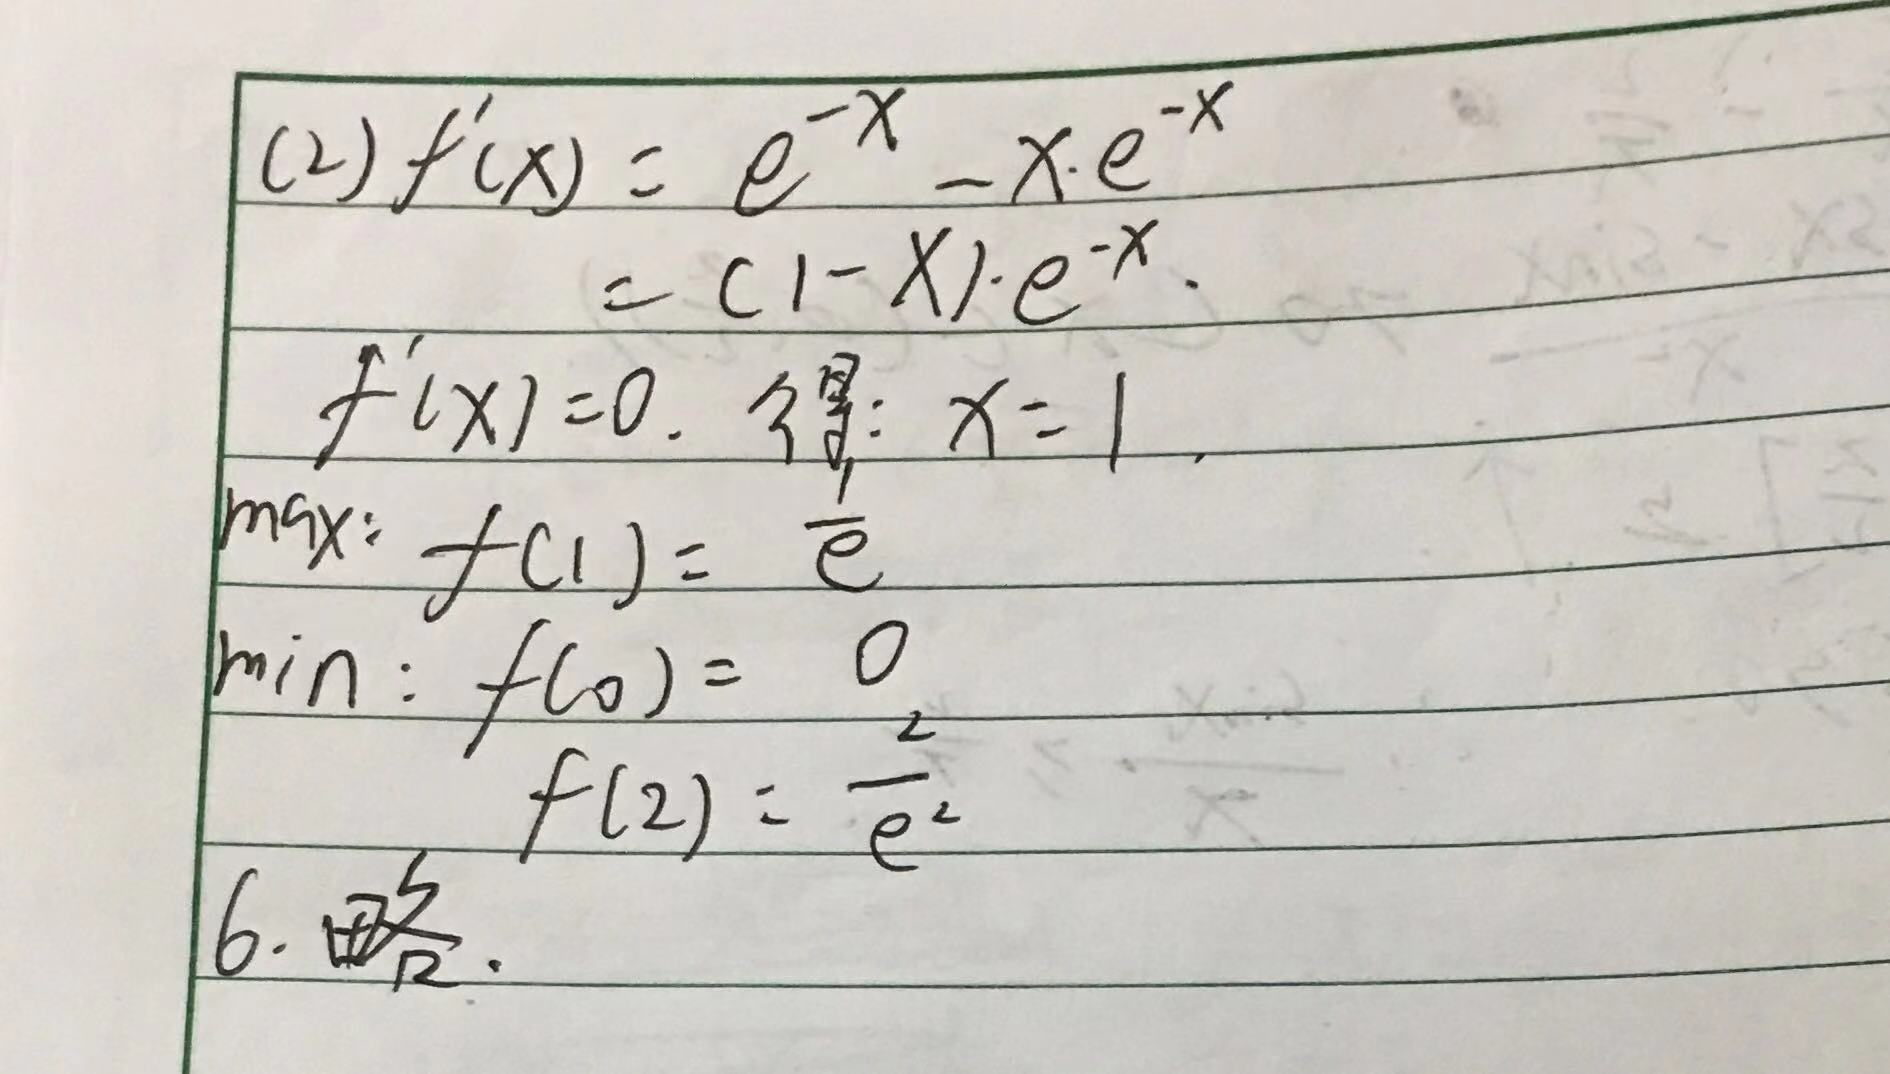 (2) f'(x) = e^{-x} - x·e^{-x}
= (1-x)·e^{-x}.
f'(x)=0. 得: x=1.
max: f(1) = \frac{1}{e}
min: f(0) = 0
f(2) = \frac{2}{e^2}
6. 略.